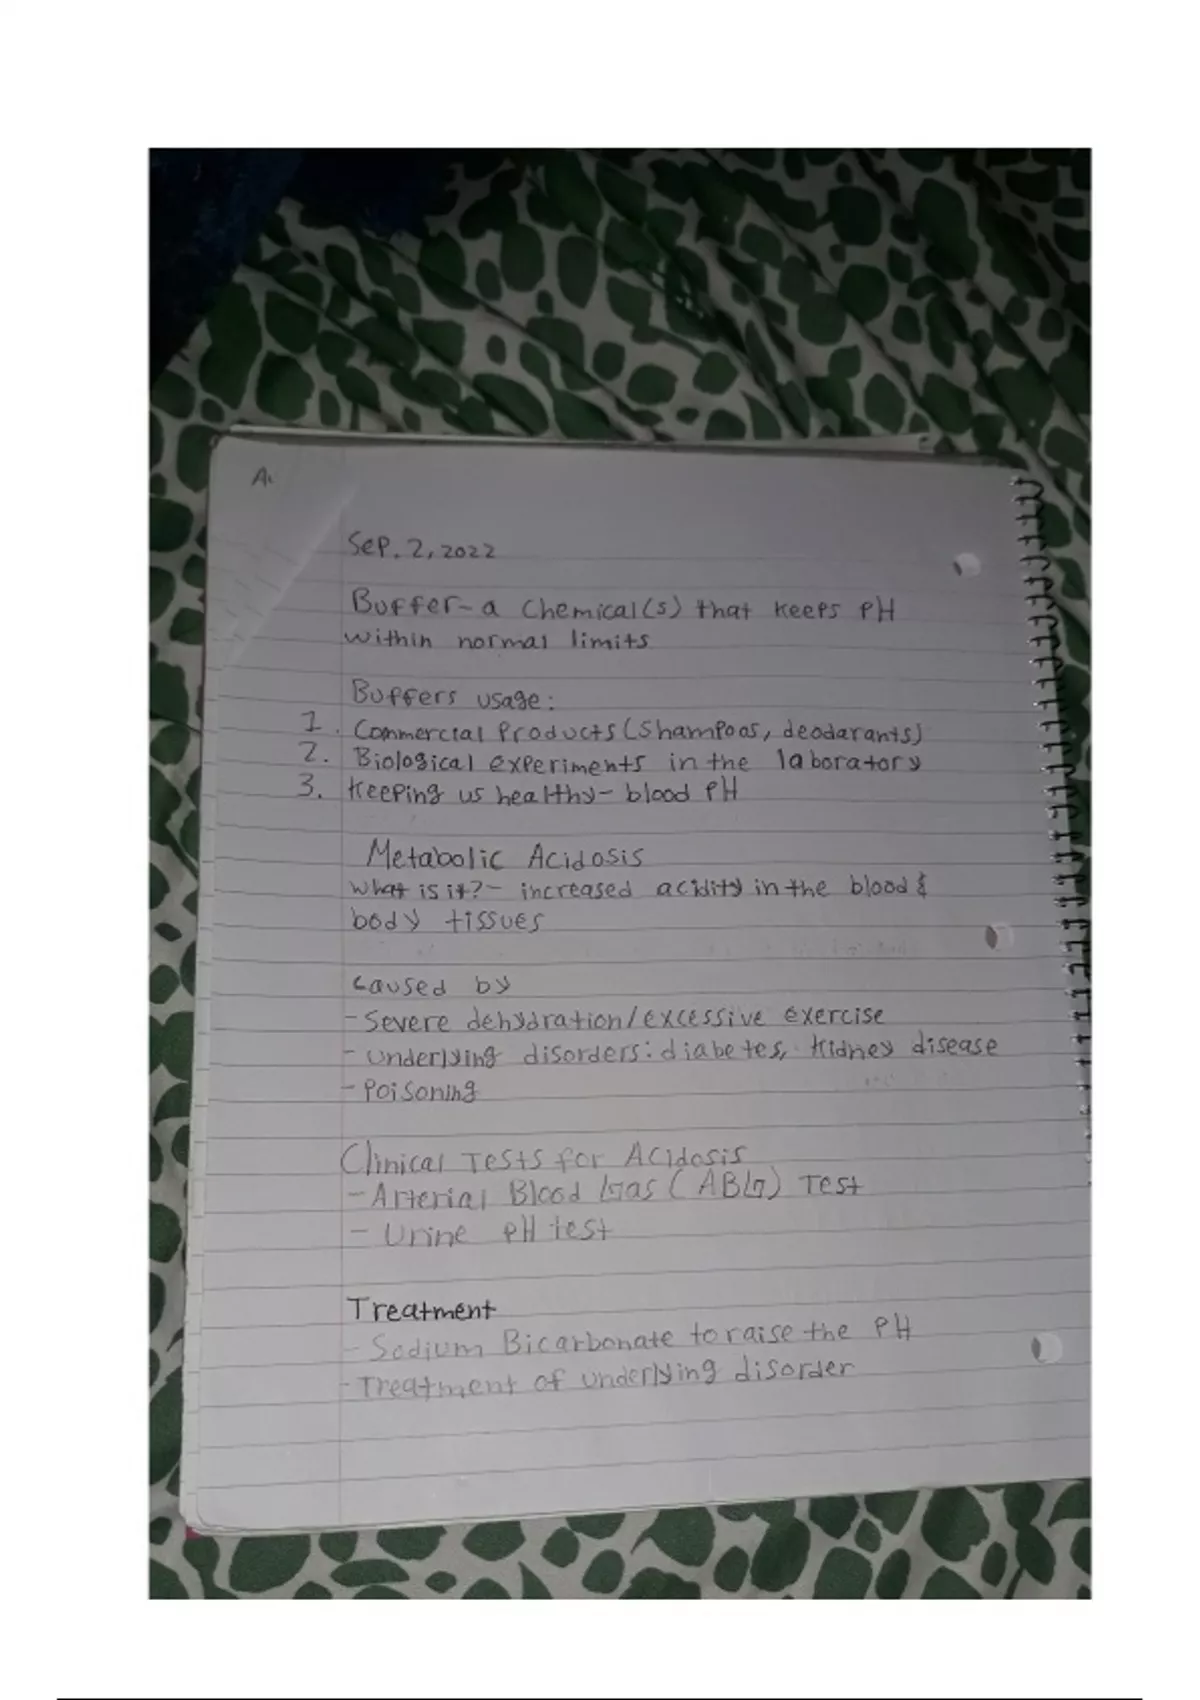 A.
Sep. 2, 2022
Buffer- a chemical(s) that keeps pH
within normal limits
Buffers usage:
1. Commercial Products (Shampoos, deodarants)
2. Biological experiments in the laboratory
3. Keeping us healthy- blood pH
Metabolic Acidosis
What is it?- increased acidity in the blood &
body tissues
Caused by
- Severe dehydration/excessive exercise
- Underlying disorders: diabetes, kidney disease
- Poisoning
Clinical Tests for Acidosis
- Arterial Blood Gas (ABG) Test
- Urine pH test
Treatment
- Sodium Bicarbonate to raise the pH
- Treatment of underlying disorder